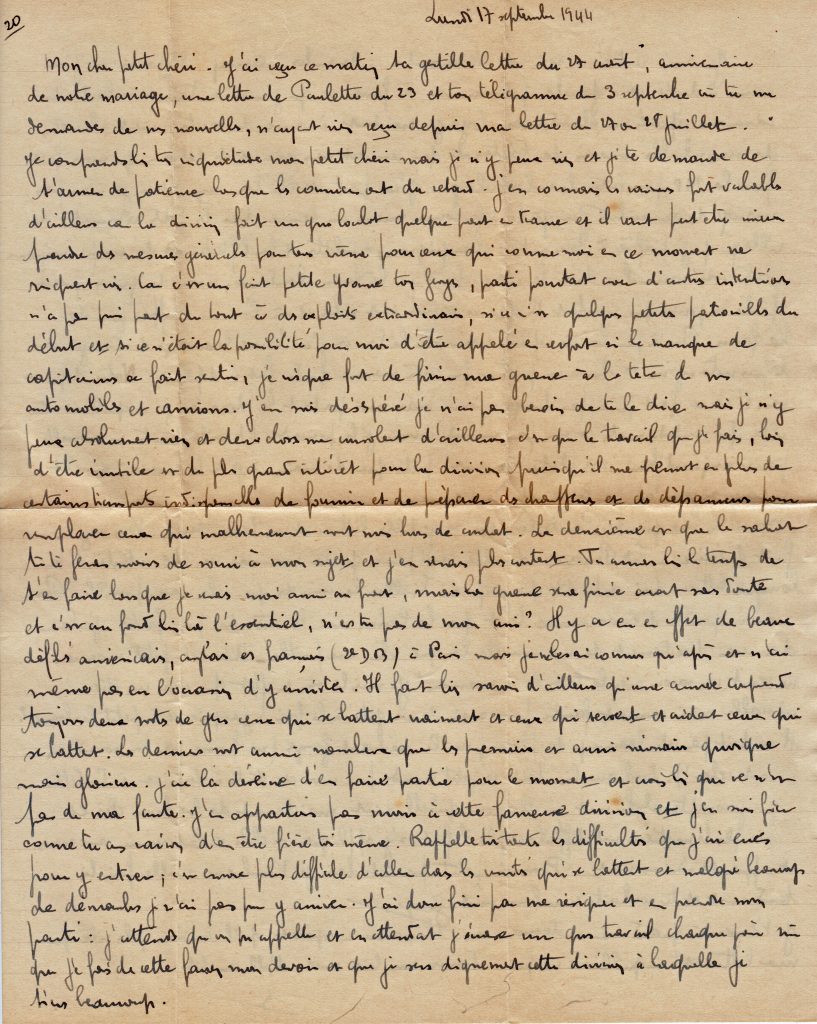 20
Lundi 17 septembre 1944
Mon cher petit chéri. J'ai reçu ce matin ta gentille lettre du 27 août, anniversaire
de notre mariage, une lettre de Paulette du 23 et ton télégramme du 3 septembre où tu me
demandes de mes nouvelles, n'ayant rien reçu depuis ma lettre du 27 ou 28 juillet.
Je comprends bien ton inquiétude mon petit chéri mais je n'y peux rien et je te demande de
t'armer de patience lorsque les courriers ont du retard. J'en connais les raisons fort valables
d'ailleurs car la division fait un gros boulot quelque part en France et il vaut peut être mieux
prendre des mesures générales pour tous même pour ceux qui comme moi en ce moment ne
risquent rien. Car c'est un fait petite Yvonne ton , parti pourtant avec d'autres intentions
n'a pas pris part du tout à des exploits extraordinaires, si ce n'est quelques petites patrouilles du
début et si ce n'était la possibilité pour moi d'être appelé en renfort si le manque de
capitaines se fait sentir, je risque fort de finir ma guerre à la tête de mes
automobiles et camions. J'en suis désespéré je n'ai pas besoin de te le dire mais je n'y
peux absolument rien et deux choses me consolent d'ailleurs c'est que le travail que je fais, loin
d'être inutile est du plus grand intérêt pour la division puisqu'il me permet en plus de
certains transports indispensables de fournir et de préparer des chauffeurs et des dépanneurs pour
remplacer ceux qui malheureusement sont mis hors de combat. La deuxième est que le sachant
tu te feras moins de souci à mon sujet et j'en serais plus content. Tu auras bien le temps de
t'en faire lorsque je serais moi aussi au front, mais la guerre sera finie avant sans doute
et c'est au fond bien là l'essentiel, n'es tu pas de mon avis? Il y a eu en effet de beaux
défilés américains, anglais et français (2e DB) à Paris mais je ne les ai connus qu'après et n'ai
même pas eu l'occasion d'y assister. Il faut bien savoir d'ailleurs qu'une armée comprend
toujours deux sortes de gens ceux qui se battent vraiment et ceux qui servent et aident ceux qui
se battent. Les derniers sont aussi nombreux que les premiers et aussi nécessaires quoique
moins glorieux. J'ai la déveine d'en faire partie pour le moment et crois bien que ce n'est
pas de ma faute. J'en appartiens pas moins à cette fameuse division et j'en suis fier
comme tu as raison d'en être fière toi même. Rappelle toi toutes les difficultés que j'ai eues
pour y entrer; c'est encore plus difficile d'aller dans les unités qui se battent et malgré beaucoup
de démarches je n'ai pas pu y arriver. J'ai donc fini par me résigner et en prendre mon
parti: j'attends qu'on m'appelle et en attendant j'exerce un gros travail chaque jour sûr
que je fais de cette façon mon devoir et que je sers dignement cette division à laquelle je
tiens beaucoup.